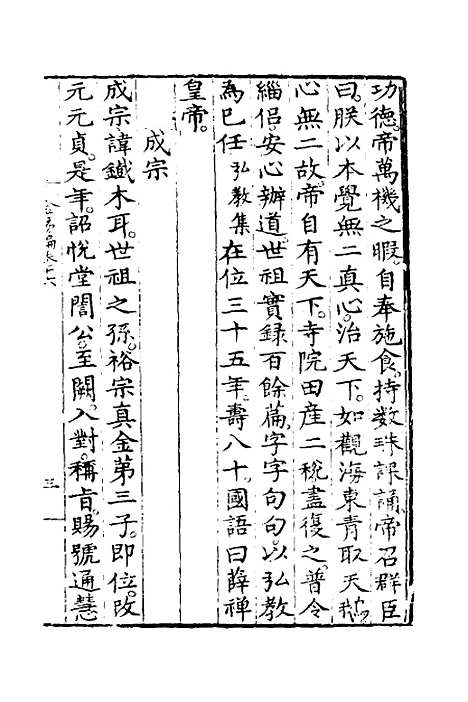 功德帝萬機之暇自奉施食持数珠課誦帝召群臣
曰朕以本覺無二真心治天下如觀海東青取天鵝
心無二故帝自有天下寺院田産二稅盡復之普令
緇侶安心辦道世祖實録百餘篇字字句句以弘教
為巳任弘教集在位三十五年壽八十國語曰薛禪
皇帝
成宗
成宗諱鐵木耳世祖之孫裕宗真金第三子即位改
元元貞是年詔悅堂誾公至闕入對稱旨賜號通慧
三